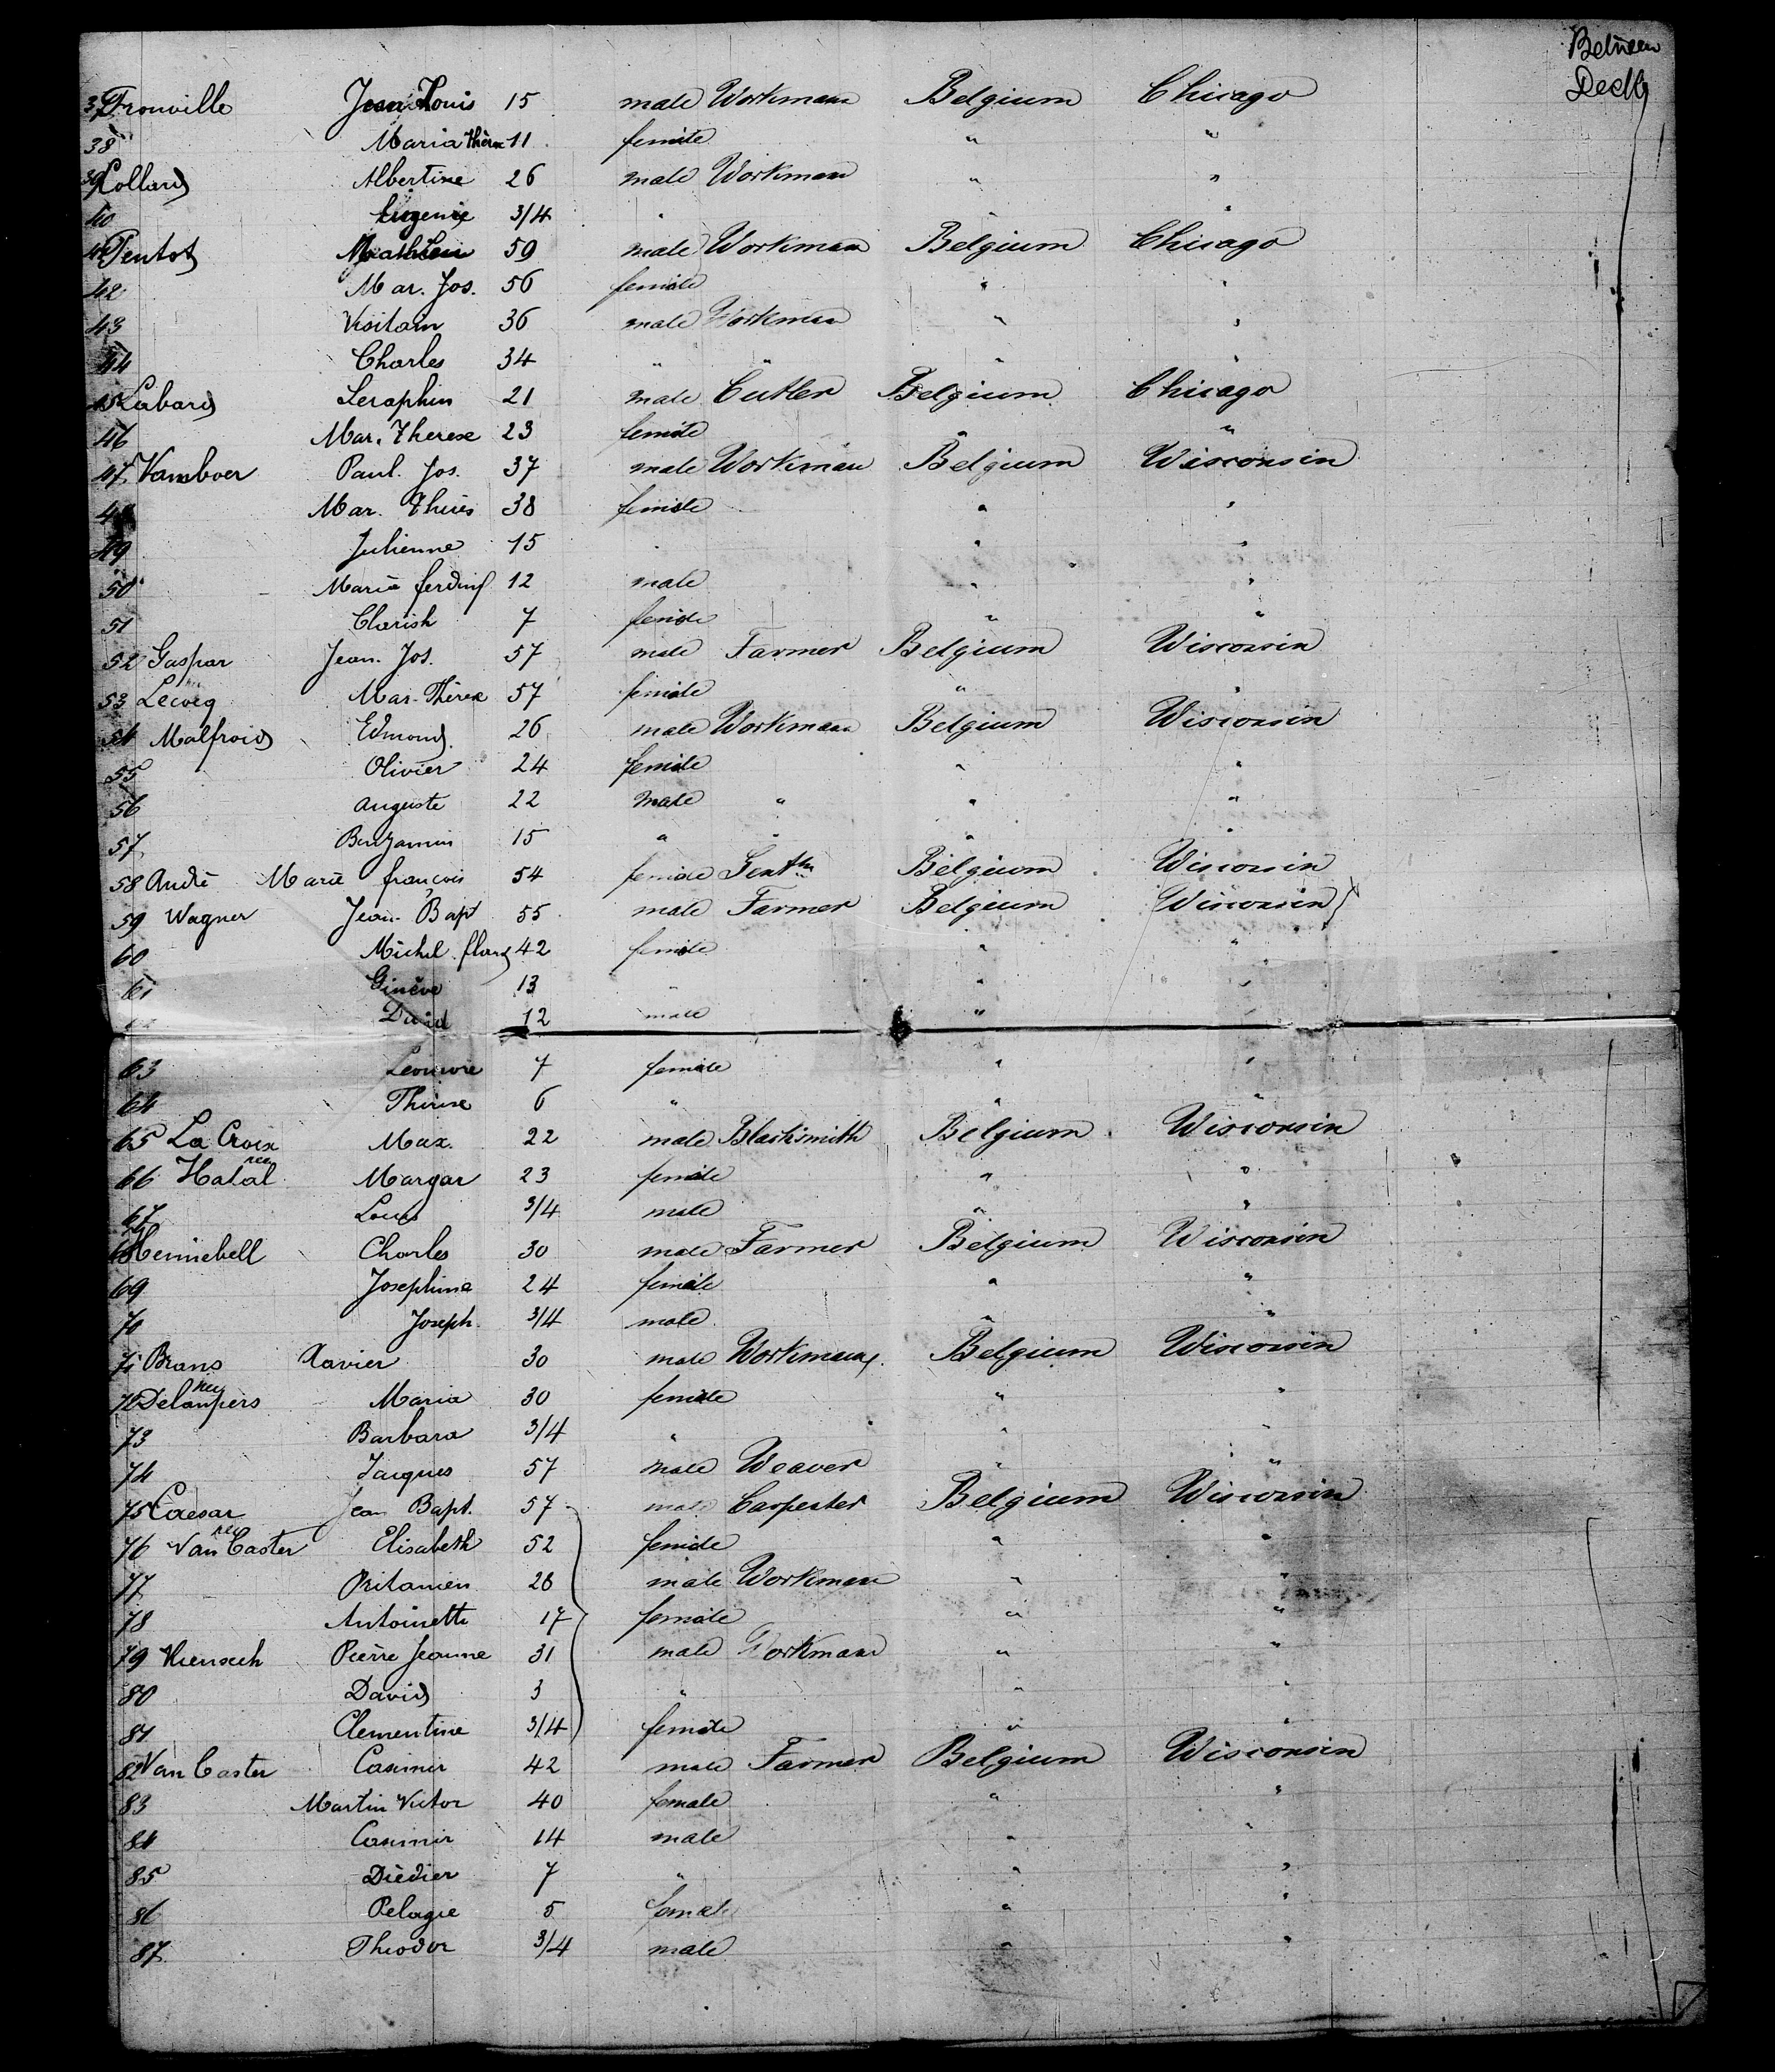 Between
Deck
37 Fronville Jean Louis 15 male Workman Belgium Chicago
38 Maria Thérèse 11 female " "
39 Collard Albertine 26 male Workman " "
40 Eugenie 3/4 " " "
41 Pentot 59 male Workman Belgium Chicago
42 Mar. Jos. 56 female " "
43 36 male Workman " "
44 Charles 34 " " " "
45 Labard Seraphin 21 male Cutler Belgium Chicago
46 Mar. Therese 23 female " "
47 Vamboer Paul. Jos. 37 male Workman Belgium Wisconsin
48 Mar. 38 female " "
49 Julienne 15 " " "
50 Maria ferdin 12 male " "
51 Clarish 7 female " "
52 Gaspar Jean. Jos. 57 male Farmer Belgium Wisconsin
53 Lecocq Mar. Thérèse 57 female " "
54 Malfroid Edmond. 26 male Workman Belgium Wisconsin
55 Olivier 24 female " "
56 Auguste 22 male " " "
57 Benjamin 15 " " " "
58 André Marie françois 54 female Belgium Wisconsin
59 Wagner Jean Bapt 55 male Farmer Belgium Wisconsin
60 Michel. 42 female " "
61 Ginève 13 " " "
David 12 male " "
63 7 female " "
64 Thérèse 6 " " "
65 La Croix Max. 22 male Blacksmith Belgium Wisconsin
66 Halal née Margar 23 female " "
67 Louis 3/4 male " "
68 Hennebell Charles 30 male Farmer Belgium Wisconsin
69 Josephine 24 female " "
70 Joseph. 3/4 male " "
71 Brans Xavier 30 male Workman Belgium Wisconsin
72 née Maria 30 female " "
73 Barbara 3/4 " " "
74 Jacques 57 male Weaver " "
75 Caesar Jean Bapt. 57 male Carpenter Belgium Wisconsin
76 née Van Caster Elisabeth 52 female " "
77 28 male Workman " "
78 Antoinette 17 female " "
79 Pièrre Jeanne 31 male Workman " "
80 David 3 " " "
81 Clementine 3/4 female " "
82 Van Caster Casimir 42 male Farmer Belgium Wisconsin
83 Martin Victor 40 female " "
84 Casimir 14 male " "
85 Dièdier 7 " " "
86 Pelagie 5 female " "
87 Theodor 3/4 male " "